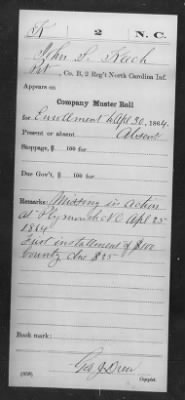 K 2 N. C.
John S. Keech
Pvt, Co. B, 2 Reg't North Carolina Inf.
Appears on
Company Muster Roll
for Enrollment to Apl 30, 1864.
Present or absent Absent
Stoppage, $ 100 for
Due Gov't, $ 100 for
Remarks: Missing in Action
at Plymouth NC Apl 25
1864
First installment of $100
bounty due $25
Book mark:
Geo J Drew
(358) Copyist.